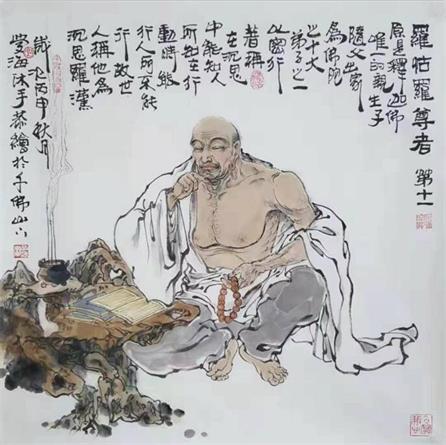 羅怙羅尊者 第十一
原是釋迦佛
唯一的親生子
隨父出家
為佛陀
之十大
弟子之一
以密行
著稱
在沉思
中能知人
所知在行
動時能
行人所不能
行故世
人稱他為
沉思羅漢
歲次丙申秋月
海沐手恭繪於千佛山下